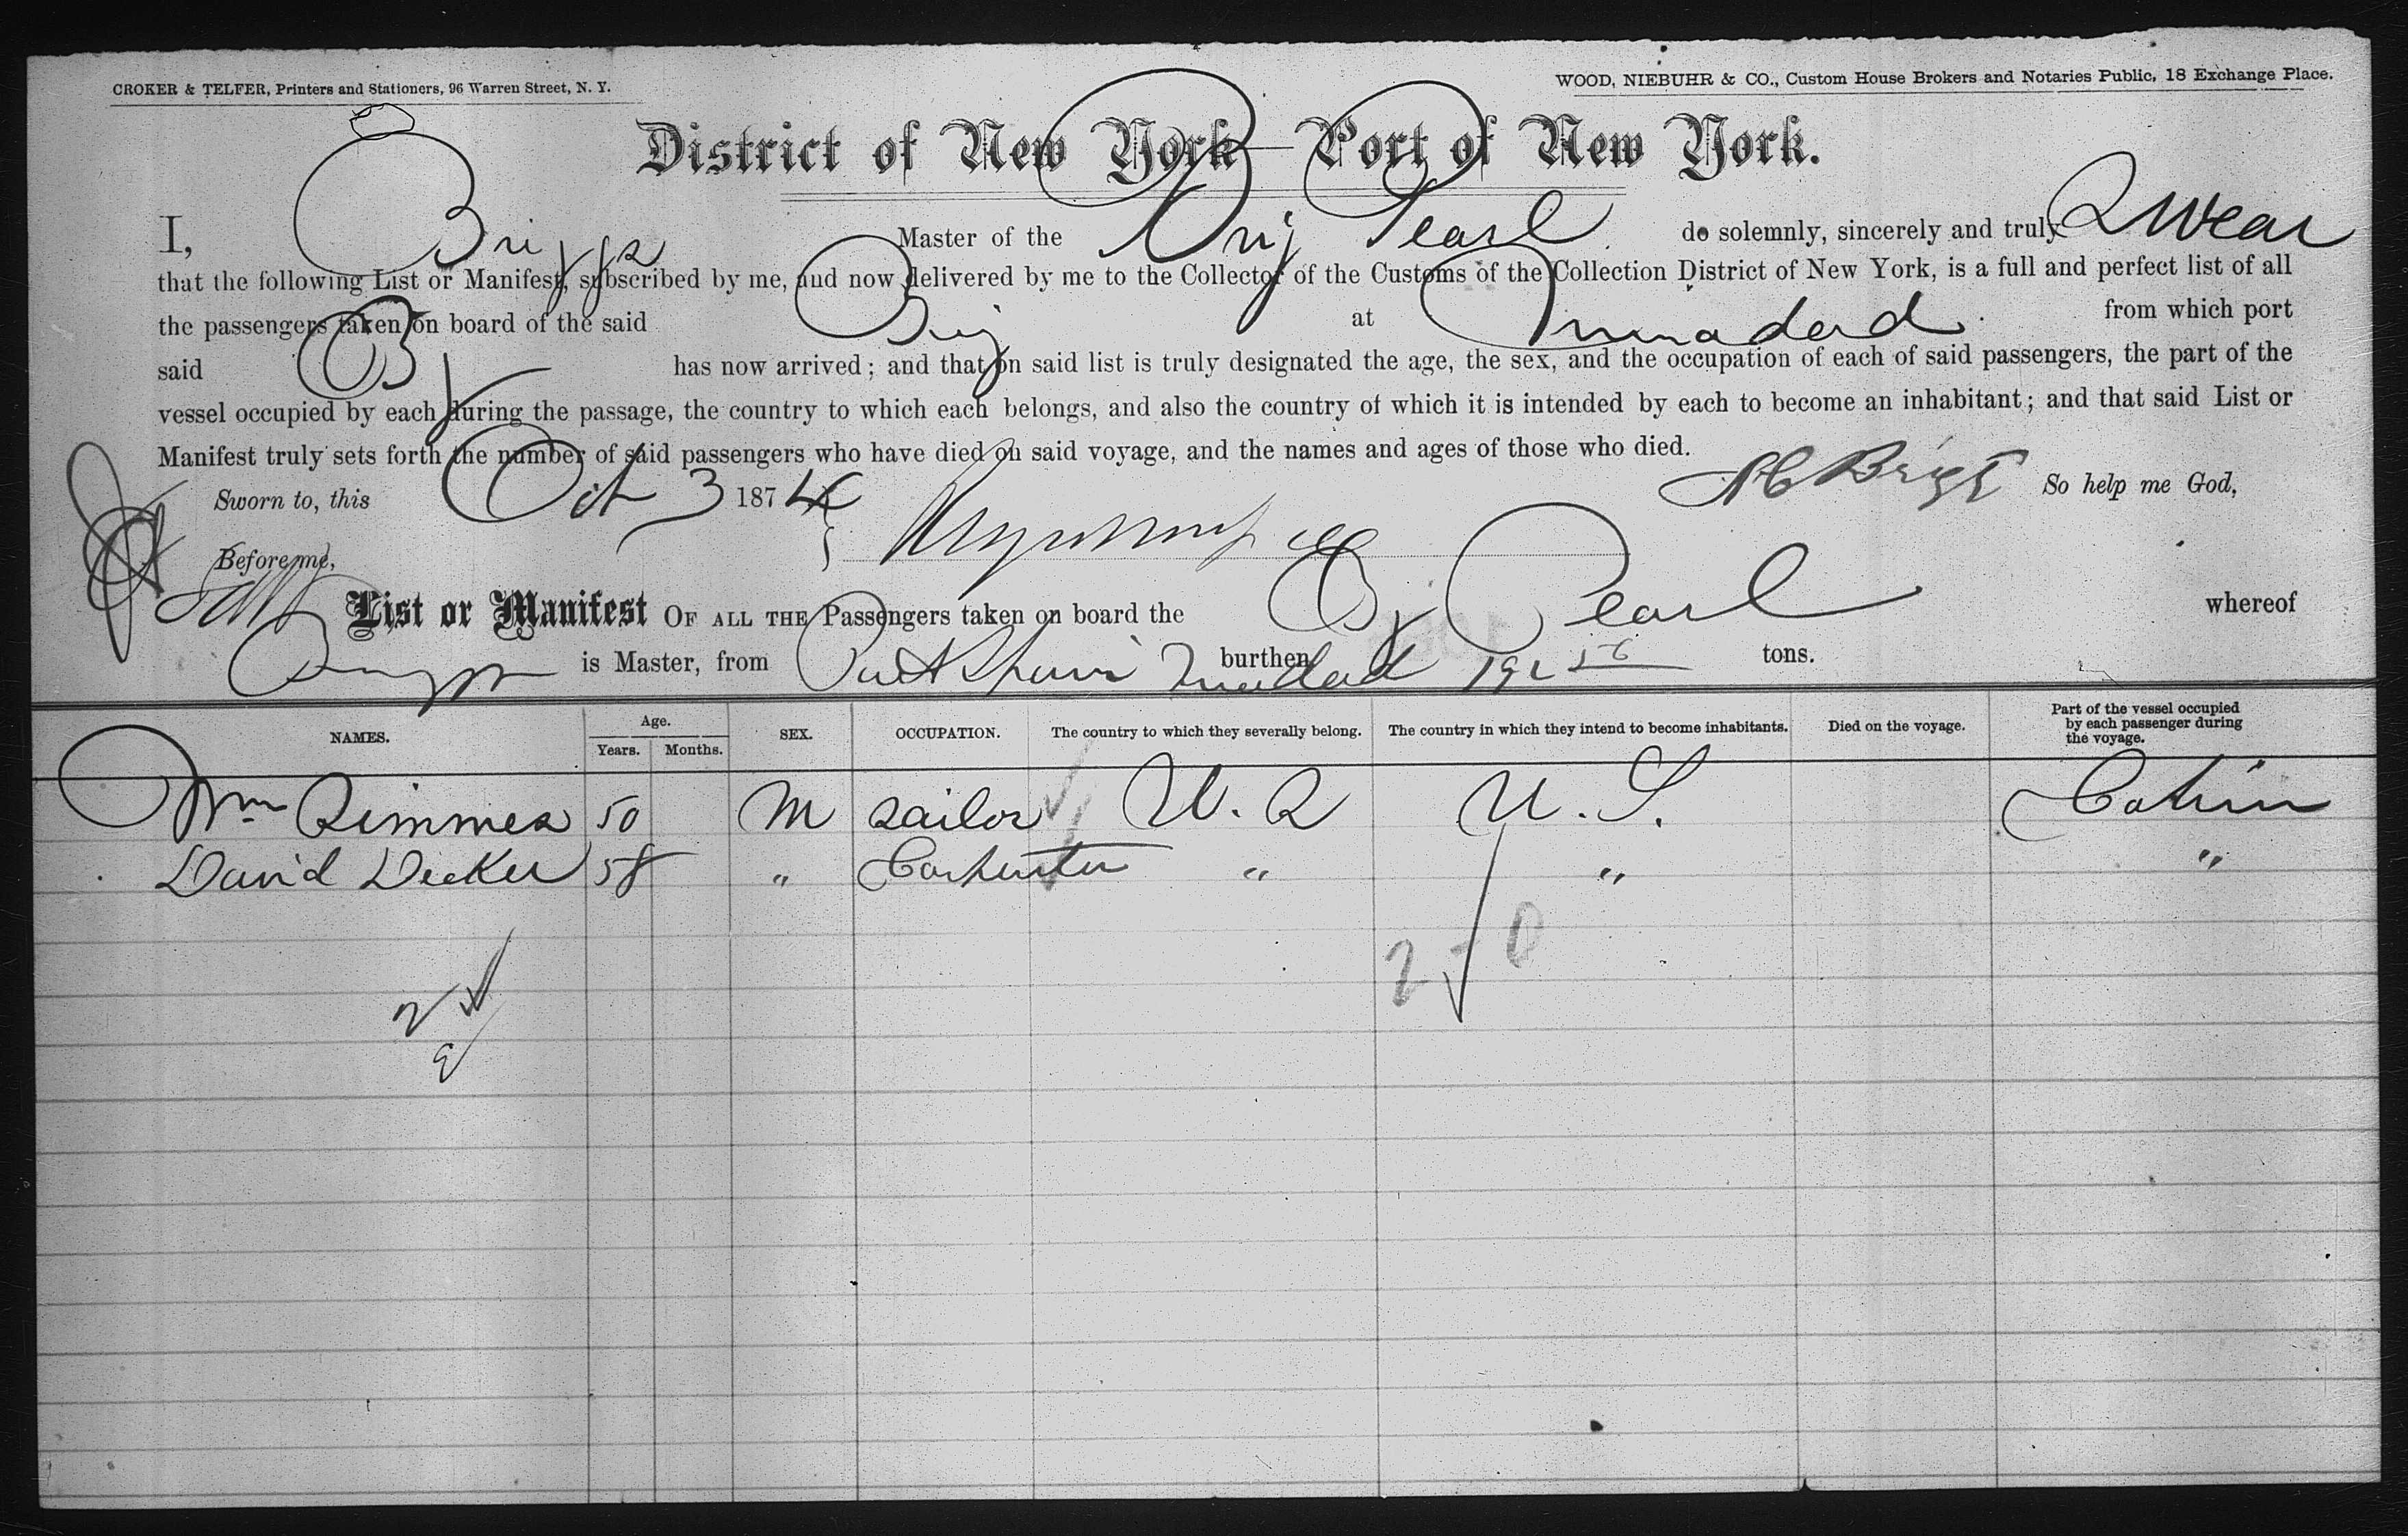 CROKER & TELFER, Printers and Stationers, 96 Warren Street, N. Y.
WOOD, NIEBUHR & CO., Custom House Brokers and Notaries Public, 18 Exchange Place.
District of New York—Port of New York.
I, Briggs Master of the Brig Pearl do solemnly, sincerely and truly Swear
that the following List or Manifest, subscribed by me, and now delivered by me to the Collector of the Customs of the Collection District of New York, is a full and perfect list of all
the passengers taken on board of the said Brig at Trinadad from which port
said Bg has now arrived; and that on said list is truly designated the age, the sex, and the occupation of each of said passengers, the part of the
vessel occupied by each during the passage, the country to which each belongs, and also the country of which it is intended by each to become an inhabitant; and that said List or
Manifest truly sets forth the number of said passengers who have died on said voyage, and the names and ages of those who died.
Sworn to, this Oct 3 1874 Briggs So help me God,
Before me,
List or Manifest OF ALL THE Passengers taken on board the Bg Pearl whereof
Briggs is Master, from Port Spain Trinidad burthen 192 56 tons.
NAMES. Age. SEX. OCCUPATION. The country to which they severally belong. The country in which they intend to become inhabitants. Died on the voyage. Part of the vessel occupied by each passenger during the voyage.
Years. Months.
Wm Simmes 50 M Sailor U. S U. S. Cabin
David Decker 58 " Carpenter " " "
2 - 0
2